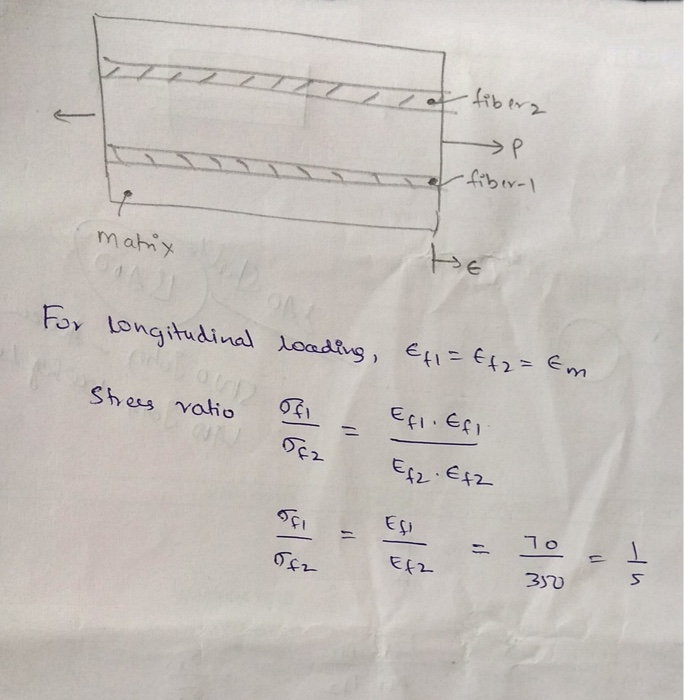 fiber2
P
fiber-1
Matrix
ε
For Longitudinal loading, εf1 = εf2 = εm
Stress ratio σf1/σf2 = Ef1 . εf1 / Ef2 . εf2
σf1/σf2 = Ef1/Ef2 = 70/350 = 1/5